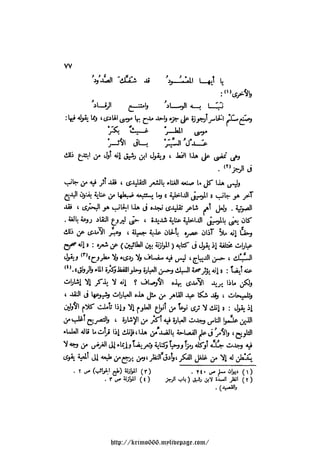 ٧٧
يا أيهـا المعْمُـــودُ قد شَفَّكَ الصُّدُودُ
والأخرى(١) :
نَبَـا بــه الوســادُ وامتنـــع الرقــادُ
وصنع سَلَمٌ الخاسر أرجوزة على جزء واحد مدح بها موسى الهادى، ومما يقوله فيها :
موسى المطــرْ غيــثٌ بكَرْ
عــدلُ السِّيَرْ باقى الأثـرْ
وهى تمضى على هذا النمط ، ويقول ابن رشيق إنه أول من ابتدع ذلك
فى الرجز(٢) .
وليس هذا كل ما صنعه الغناء بالشعر التقليدى ، فقد أثر فيه من جانب
آخر هو جانب « الموسيقى الداخلية » وما يستتبعه ضبطها من عناية بفنون البديع
الصوتية . ولعل أهم شاعر تقليدى نجده فى هذا الجانب هو البحترى ، فقد
كان يعنى بالموسيقى الداخلية عناية شديدة ، حتى ليروع النقاد روعة بالغة .
وحقًّا إنه ملأ آذان عصره بألحان عذبة جميلة ، وعبَّر الآمدى عن ذلك
عبارات مختلفة إذ يقول فى كتابه ( الموازنة بين الطائيين ) عن شعره : « إنه صحيح
السَّبك ، حسن الديباج ، ليس فيه سفساف ولا ردىء ولا مطروح»(٣) ويقول
عنه أيضاً : « إنه يؤثر صحة السبك وحسن العبارة وحلو اللفظ وكثرة الماء والرونق»(٤) .
ولكن ماذا يريد الآمدى بهذه الأوصاف ؟ إنه لا يذكر إلا إشارات
وتلميحات ، وقد شكا عبد القاهر من مثل هذه العبارات وشيوعها فى النقد ،
إذ يقول : « إنك لا ترى نوعاً من أنواع العلوم إلا وإذا تأملت كلام الأولين
الذين علَّموا الناس وجدت العبارة فيه أكثر من الإشارة ، والتصريح أغلب من
التلويح ، والأمر فى علم الفصاحة بالضد من هذا، فإنك إذا قرأت ما قاله العلماء
فيه وجدت جلَّه أو كله رمزاً ووحياً وكناية وتعريضاً وإيماء إلى الغرض من وجه لا
يفطن له إلا من غلغل الفكر ، وأدق النظر ، ومن يرجع من طبعه إلى ألمعية يقوى
(١) ديوان مسلم ص ٢٤٠ .
(٢) انظر العمدة لابن رشيق ( باب الرجز
والقصيد) .
(٣) الموازنة (طبع الجوائب) ص ٢ .
(٤) الموازنة ص ٣ .
http://krimo666.mylivepage.com/